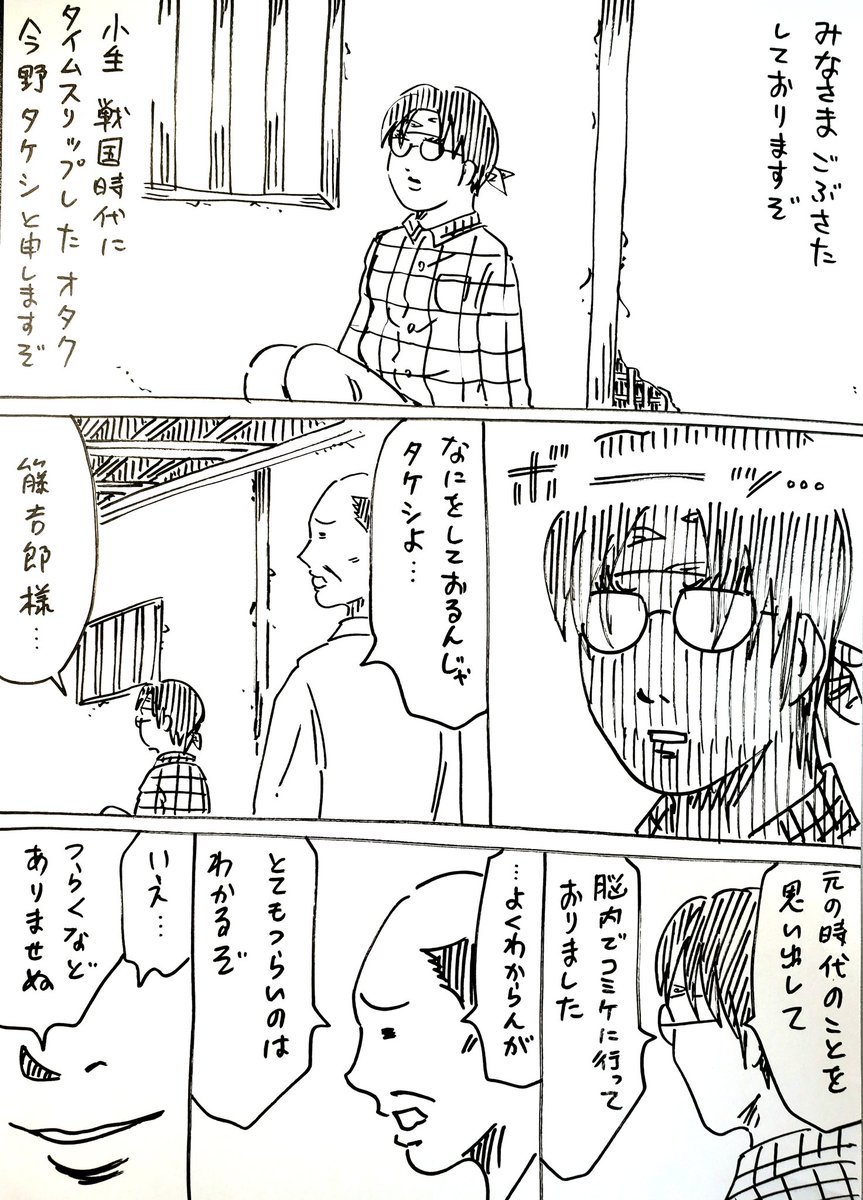 みなさま ごぶさた
しておりますぞ
小生 戦国時代に
タイムスリップした オタク
今野 タケシと申しますぞ
ボーッ…
なにをしておるんじゃ
タケシよ…
藤吉郎様…
元の時代のことを
思い出して
脳内でコミケに行って
おりました
…よくわからんが
とてもつらいのは
わかるぞ
いえ…
つらくなど
ありませぬ